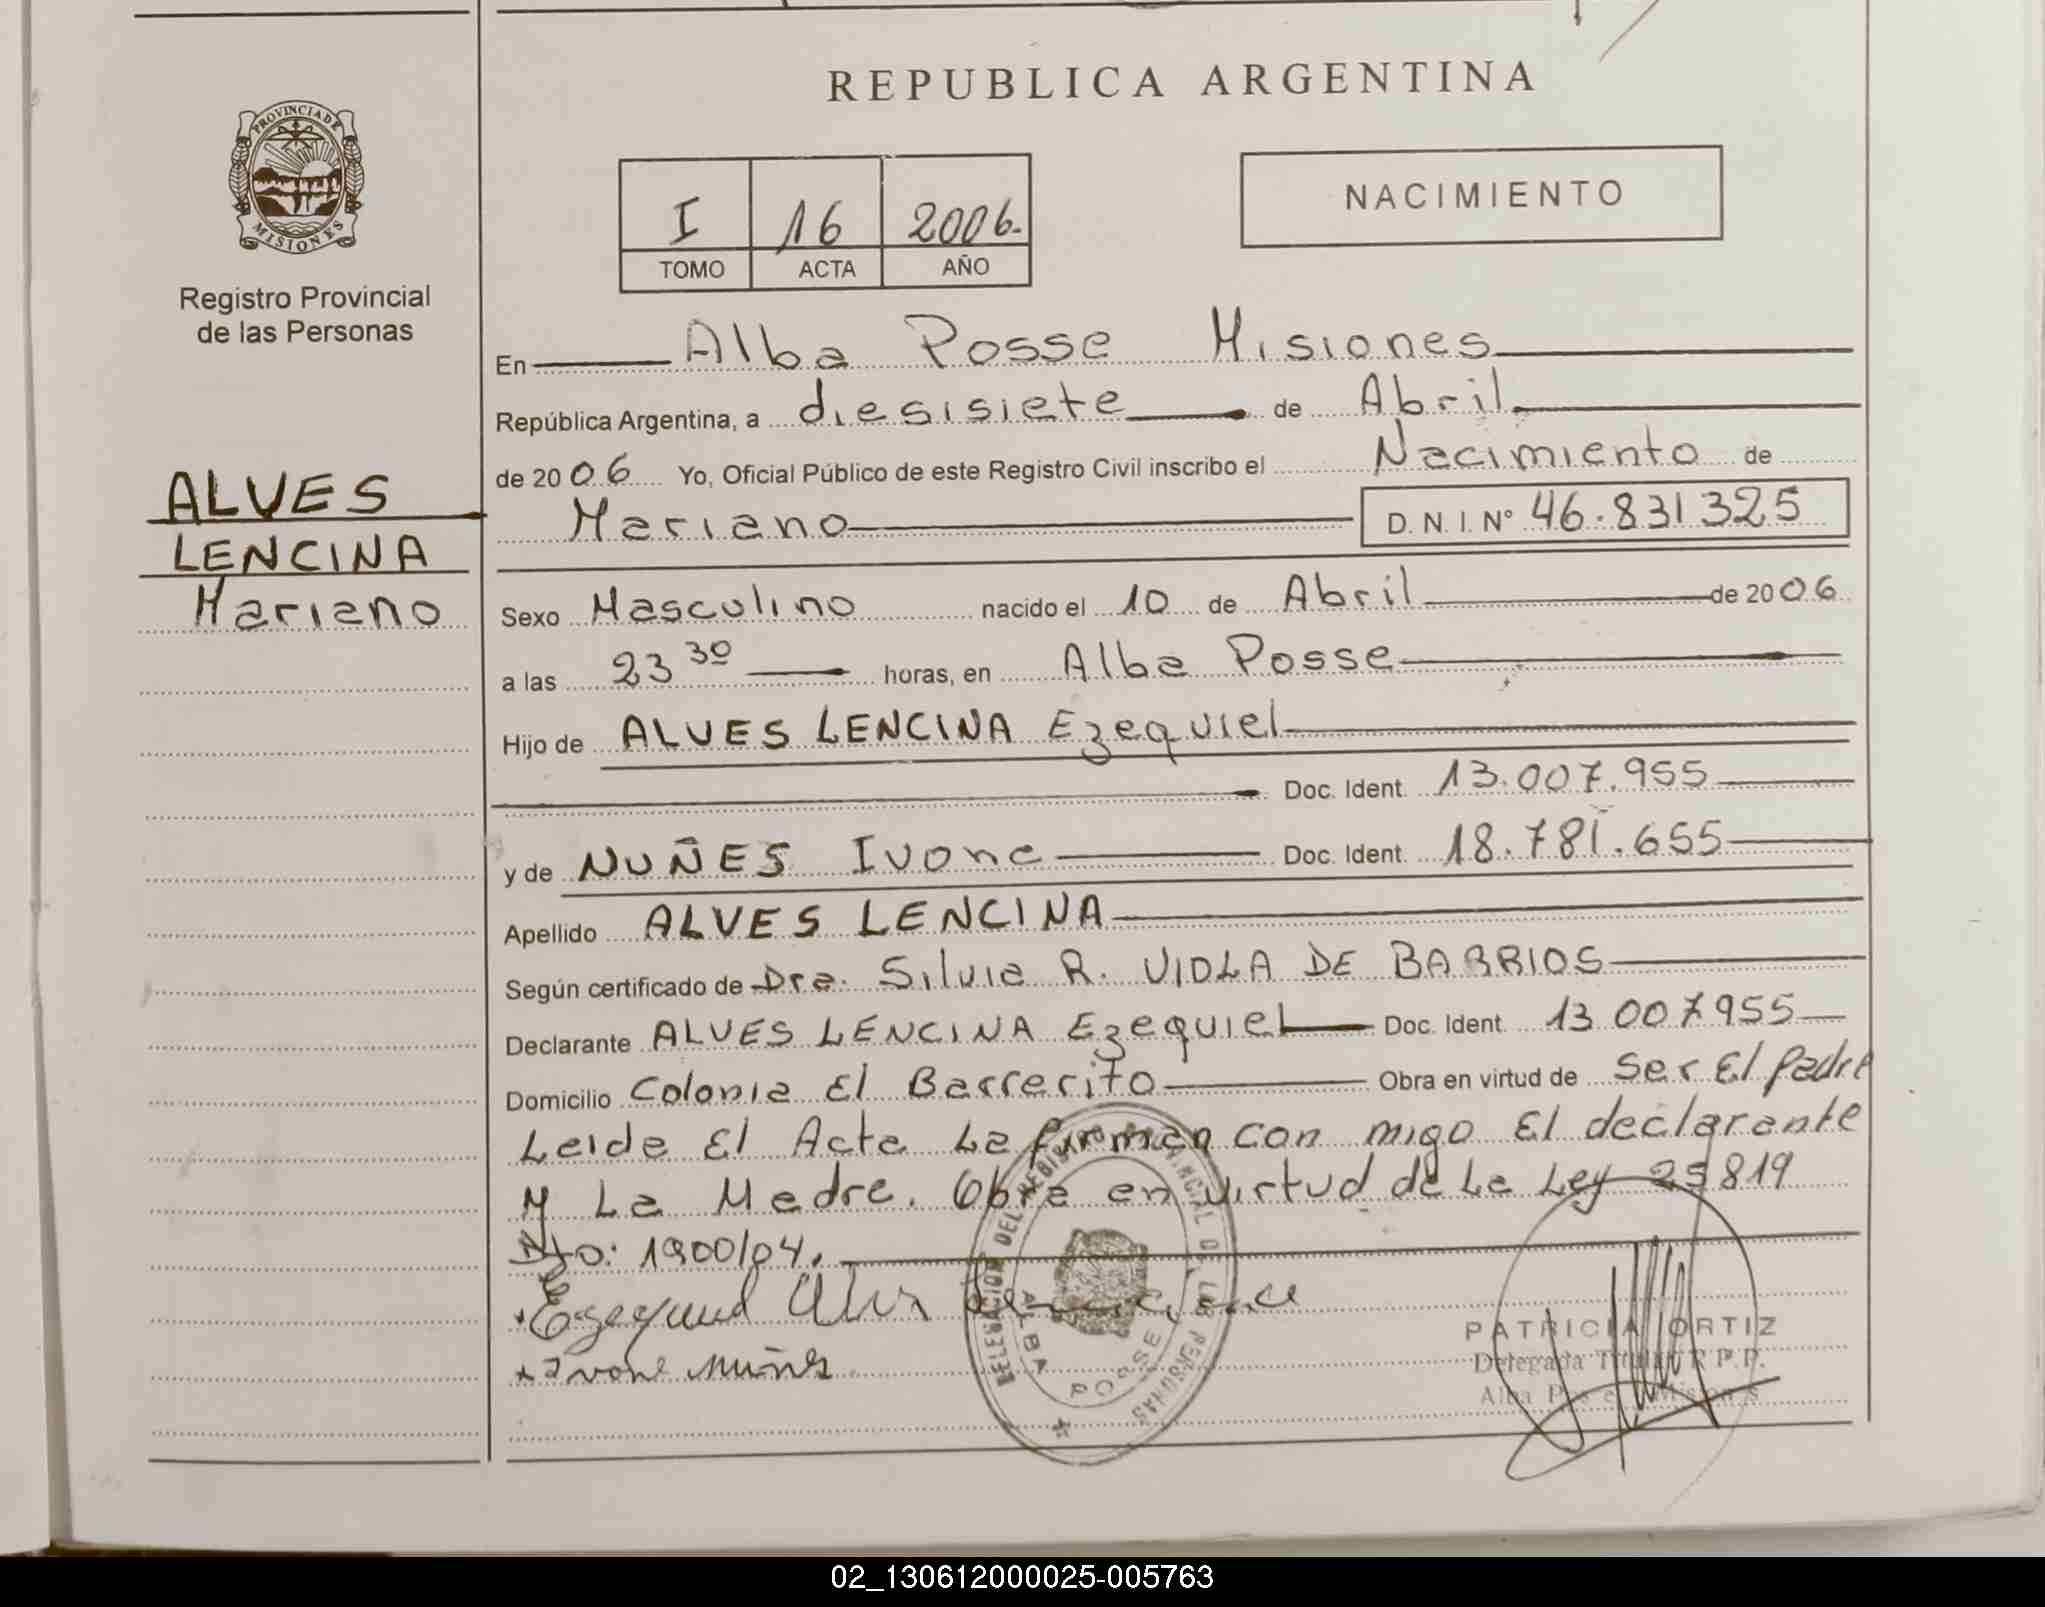 REPUBLICA ARGENTINA
PROVINCIA DE
MISIONES
Registro Provincial
de las Personas
I 16 2006.
TOMO ACTA AÑO
NACIMIENTO
ALVES
LENCINA
Mariano
En Alba Posse Misiones
República Argentina, a diesisiete de Abril
de 2006 Yo, Oficial Público de este Registro Civil inscribo el Nacimiento de
Mariano D. N. I. Nº 46.831325
Sexo Masculino nacido el 10 de Abril de 2006
a las 23 30 horas, en Alba Posse
Hijo de ALVES LENCINA Ezequiel
Doc. Ident. 13.007.955
y de NUÑES Ivone Doc. Ident. 18.781.655
Apellido ALVES LENCINA
Según certificado de Dra. Silvia R. VIOLA DE BARRIOS
Declarante ALVES LENCINA Ezequiel Doc. Ident. 13 007955
Domicilio Colonia El Barrerito Obra en virtud de Ser El Padre
Leida El Acta La firman con migo El declarante
y La Madre. Obra en virtud de La Ley 25819
Dto: 1900/04.
Ezequiel Alves Lencina
Ivone Nuñes
DELEGACION DEL REGISTRO PROVINCIAL DE LAS PERSONAS
ALBA POSSE
PATRICIA ORTIZ
Delegada Titular R.P.P.
Alba Posse Misiones
02_130612000025-005763